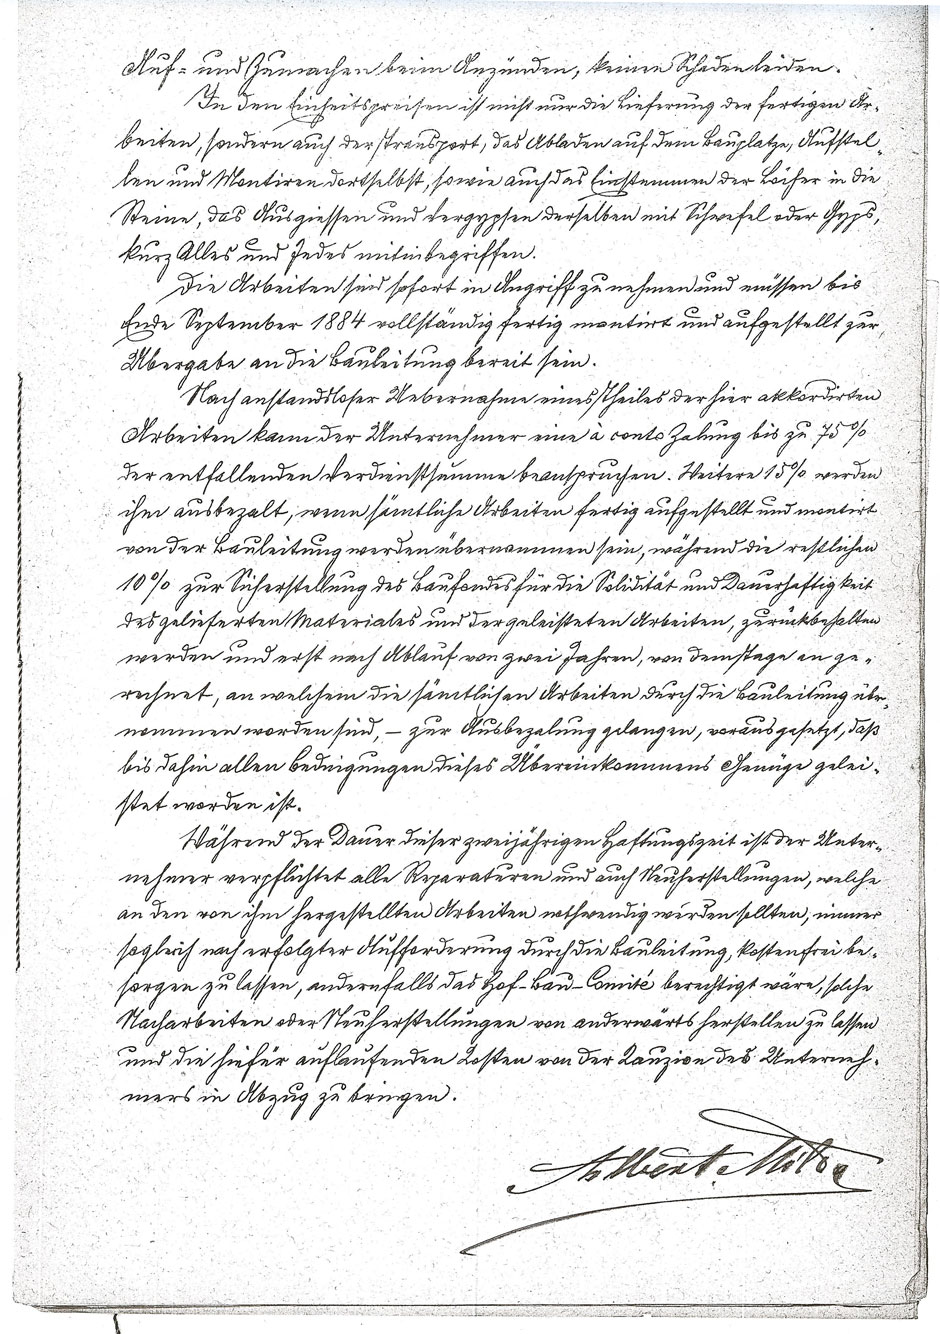 Auf- und Zumachen beim Anzünden, keinen Schaden leiden.
In den Einheitspreisen ist nicht nur die Lieferung der fertigen Ar-
beiten, sondern auch der Transport, das Abladen auf dem Bauplatze, Aufstel-
len und Montiren dortselbst, sowie auch das Einstemmen der Löcher in die
Steine, das Ausgiessen und Vergypsen derselben mit Schwefel oder Gyps,
kurz Alles und Jedes mitinbegriffen.
Die Arbeiten sind sofort in Angriff zu nehmen und müssen bis
Ende September 1884 vollständig fertig montirt und aufgestellt zur
Übergabe an die Bauleitung bereit sein.
Nach anstandsloser Uebernahme eines Theiles der hier akkordirten
Arbeiten kann der Unternehmer eine à conto Zalung bis zu 75%
der entfallenden Verdienstsumme beanspruchen. Weitere 15% werden
ihm ausbezalt, wenn sämtliche Arbeiten fertig aufgestellt und montirt
von der Bauleitung werden übernommen sein, während die restlichen
10% zur Sicherstellung des Baufondes für die Solidität und Dauerhaftigkeit
des gelieferten Materiales und der geleisteten Arbeiten, zurückbehalten
werden und erst nach Ablauf von zwei Jahren, von dem Tage an ge-
rechnet, an welchem die sämtlichen Arbeiten durch die Bauleitung über-
nommen worden sind, – zur Ausbezalung gelangen, vorausgesetzt, daß
bis dahin allen Bedingungen dieses Übereinkommens Genüge gelei-
stet worden ist.
Während der Dauer dieser zweijährigen Haftungszeit ist der Unter-
nehmer verpflichtet alle Reparaturen und auch Neuherstellungen, welche
an den von ihm hergestellten Arbeiten nothwendig werden sollten, immer
sogleich nach erfolgter Aufforderung durch die Bauleitung, kostenfrei be-
sorgen zu lassen, andernfalls das Hof-Bau-Comité berechtigt wäre, solche
Nacharbeiten oder Neuherstellungen von anderwärts herstellen zu lassen
und die hiefür auflaufenden Kosten von der Kauzion des Unterneh-
mers in Abzug zu bringen.
Albert Milde